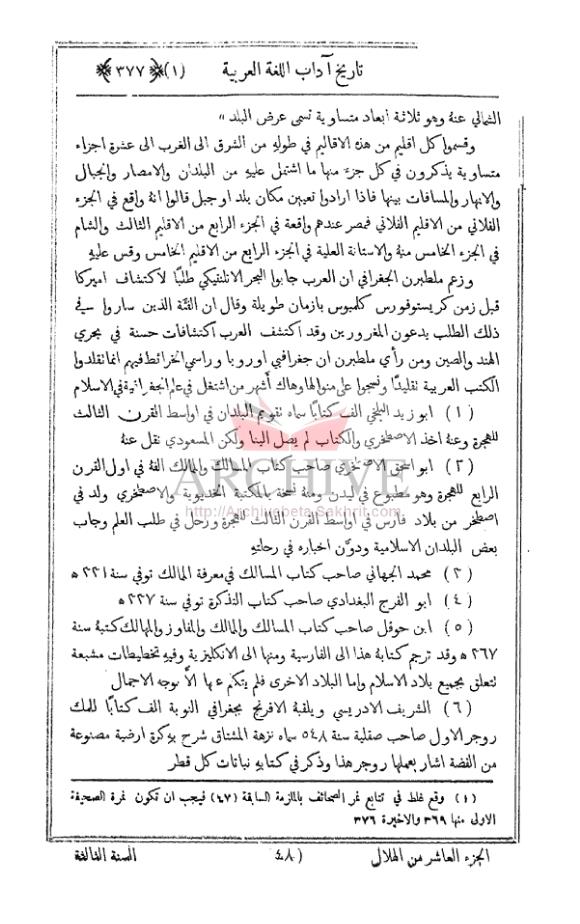 تاريخ آداب اللغة العربية (١) ﴿٣٧٧﴾
الشمالي عنهُ وهو ثلاثة ابعاد متساوية تسمى عرض البلد "
وقسموا كل اقليم من هذه الاقاليم في طوله من الشرق الى الغرب الى عشرة اجزاء
متساوية يذكرون في كل جزء منها ما اشتمل عليهِ من البلدان والامصار والجبال
والانهار والمسافات بينها فاذا ارادوا تعيين مكان بلد او جبل قالوا انهُ واقع في الجزء
الفلاني من الاقليم الفلاني فمصر عندهم واقعة في الجزء الرابع من الاقليم الثالث والشام
في الجزء الخامس منهُ والاستانة العلية في الجزء الرابع من الاقليم الخامس وقس عليهِ
وزعم ملطبرن الجغرافي ان العرب جابوا البحر الاتلنتيكي طلبًا لاكتشاف اميركا
قبل زمن كريستوفورس كلمبوس بازمان طويلة وقال ان الفئة الذين ساروا في
ذلك الطلب يدعون المغرورين وقد اكتشف العرب اكتشافات حسنة في بحري
الهند والصين ومن رأي ملطبرن ان جغرافيي اوروبا وراسمي الخرائط فيهم انما قلدوا
الكتب العربية تقليدًا ونسجوا على منوالها وهاك أشهر من اشتغل في علم الجغرافية في الاسلام
(١) ابو زيد البلخي الف كتابًا سماه تقويم البلدان في اواسط القرن الثالث
للهجرة وعنهُ اخذ الاصطخري والكتاب لم يصل الينا ولكن المسعودي نقل عنهُ
(٢) ابو اسحق الاصطخري صاحب كتاب المسالك والممالك الفهُ في اول القرن
الرابع للهجرة وهو مطبوع في ليدن ومنهُ نسخة بالمكتبة الخديوية والاصطخري ولد في
اصطخر من بلاد فارس في اواسط القرن الثالث للهجرة ورحل في طلب العلم وجاب
بعض البلدان الاسلامية ودوَّن اخباره في رحلتهِ
(٣) محمد الجهاني صاحب كتاب المسالك في معرفة الممالك توفي سنة ٣٣١ ه
(٤) ابو الفرج البغدادي صاحب كتاب التذكرة توفي سنة ٣٣٧ ه
(٥) ابن حوقل صاحب كتاب المسالك والممالك والمفاوز والمهالك كتبهُ سنة
٣٦٧ ه وقد ترجم كتابهُ هذا الى الفارسية ومنها الى الانكليزية وفيهِ تخطيطات مشبعة
تتعلق بجميع بلاد الاسلام واما البلاد الاخرى فلم يتكلم عنها الاَّ بوجه الاجمال
(٦) الشريف الادريسي ويلقبهُ الافرنج بجغرافي النوبة الف كتابًا للملك
روجر الاول صاحب صقلية سنة ٥٤٨ سماه نزهة المشتاق شرح بهِ كرة ارضية مصنوعة
من الفضة اشار بعملها روجر هذا وذكر في كتابهِ نباتات كل قطر
(١) وقع غلط في تتابع نمر الصحائف بالملزمة السابقة (٤٧) فيجب ان تكون نمرة الصحيفة
الاولى منها ٣٦٩ والاخيرة ٣٧٦
الجزء العاشر من الهلال (٤٨ السنة الثالثة
ARCHIVE
http://Archivebeta.Sakhrit.com